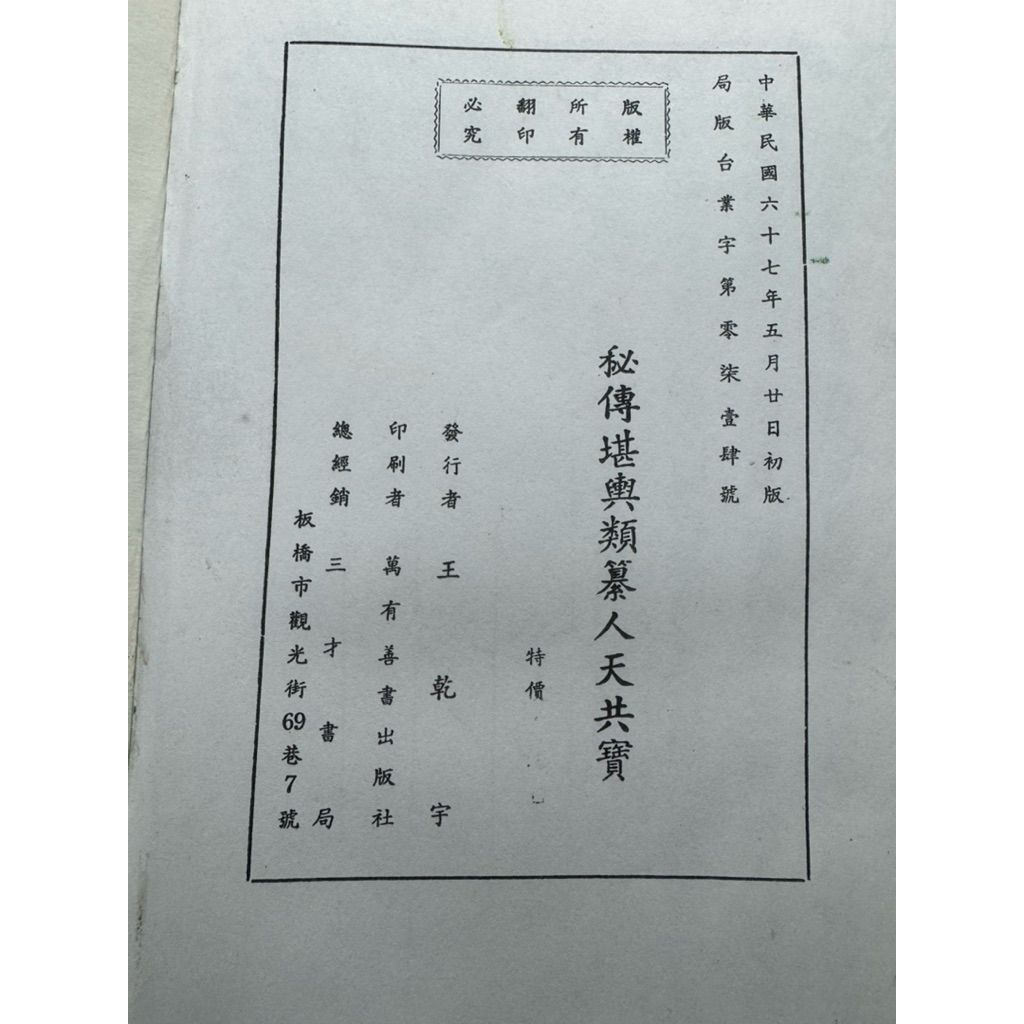 中華民國六十七年五月廿日初版
局版台業字第零柒壹肆號
版權所有翻印必究
秘傳堪輿類纂人天共寶
特價
發行者 王乾宇
印刷者 萬有善書出版社
總經銷 三才書局
板橋市觀光街69巷7號